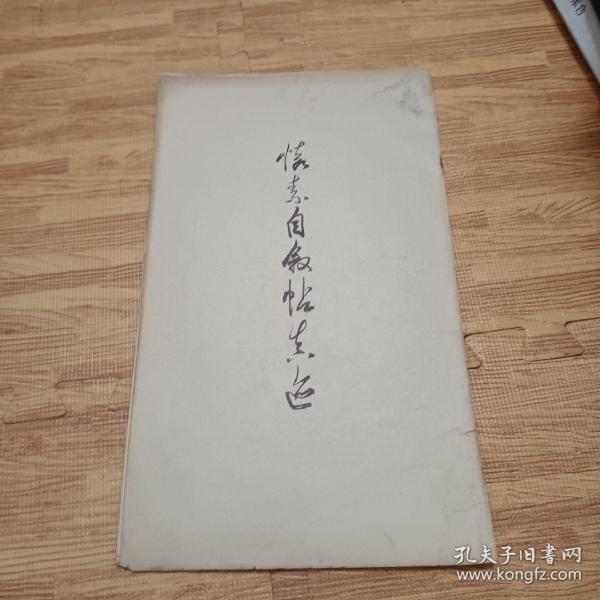 怀素自敘帖真迹
孔夫子旧书网
www.kongfz.com